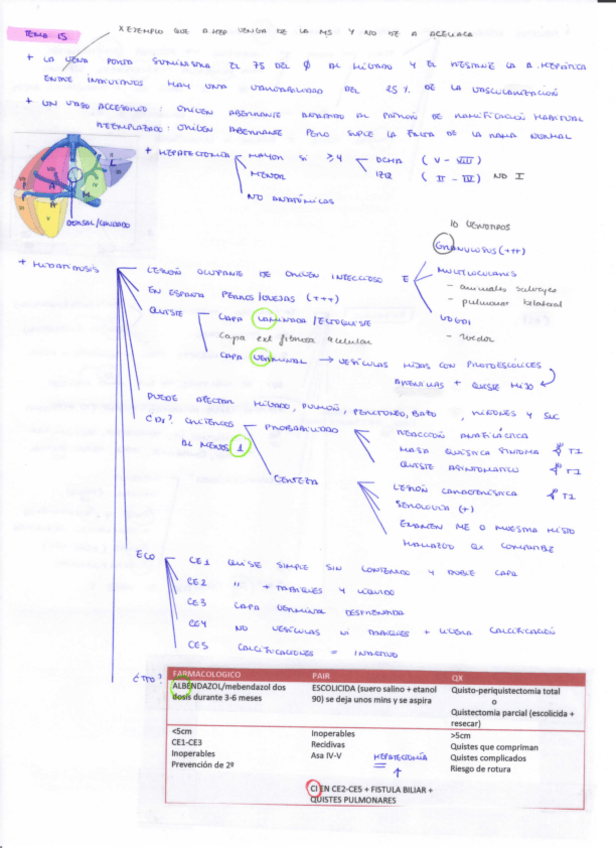 TEMA 15
X EJEMPLO QUE A.HEP VENGA DE LA MS Y NO DE A CELIACA
+ LA VENA PORTA SUMINISTRA EL 75 DEL Ø AL HÍGADO Y EL RESTANTE LA A. HEPÁTICA
ENTRE INDIVIDUOS HAY UNA VARIABILIDAD DEL 25% DE LA VASCULARIZACIÓN
+ UN VASO ACCESORIO: ORIGEN ABERRANTE AÑADIDO AL PATRÓN DE RAMIFICACIÓN HABITUAL
REEMPLAZADO: ORIGEN ABERRANTE PERO SUPLE LA FALTA DE LA RAMA NORMAL
+ HEPATECTOMÍA
MAYOR SI ≥4
DCHA (V - VIII)
IZQ (II - IV) NO I
MENOR
NO ANATÓMICAS
DORSAL/CAUDADO
+ HIDATIDOSIS
LESIÓN OCUPANTE DE ORIGEN INFECCIOSO E
GRANULOSUS (+++)
MULTILOCULARIS
- animales salvajes
- pulmonar bilateral
VOGELI
- roedor
EN ESPAÑA PERROS/OVEJAS (+++)
QUISTE
CAPA LAMINADA/ECTOQUISTE
Capa ext fibrosa acelular
CAPA GERMINAL → VESÍCULAS HIJAS CON PROTOESCÓLICES
ARENILLAS + QUISTE HIJO
PUEDE AFECTAR HÍGADO, PULMÓN, PERITONEO, BAZO, RIÑONES Y SNC
¿DX? CRITERIOS
AL MENOS 1
PROBABILIDAD
REACCIÓN ANAFILÁCTICA
MASA QUÍSTICA SÍNTOMA
QUISTE ASINTOMÁTICO
CERTEZA
LESIÓN CARACTERÍSTICA
SEROLOGÍA (+)
EXAMEN ME O MUESTRA HISTO
HALLAZGO QX COMPATIBLE
ECO
CE1 QUISTE SIMPLE SIN CONTENIDO Y DOBLE CAPA
CE2 " + TABIQUES Y LÍQUIDO
CE3 CAPA GERMINAL DESPRENDIDA
CE4 NO VESÍCULAS NI TABIQUES + LIGERA CALCIFICACIÓN
CE5 CALCIFICACIONES = INACTIVO
¿TTO?
FARMACOLOGICO PAIR QX
ALBENDAZOL/mebendazol dos dosis durante 3-6 meses
ESCOLICIDA (suero salino + etanol 90) se deja unos mins y se aspira
Quisto-periquistectomia total
o
Quistectomia parcial (escolicida + resecar)
<5cm
CE1-CE3
Inoperables
Prevención de 2º
Inoperables
Recidivas
Asa IV-V
HEPATECTOMÍA
CI EN CE2-CE5 + FISTULA BILIAR +
QUISTES PULMONARES
>5cm
Quistes que compriman
Quistes complicados
Riesgo de rotura